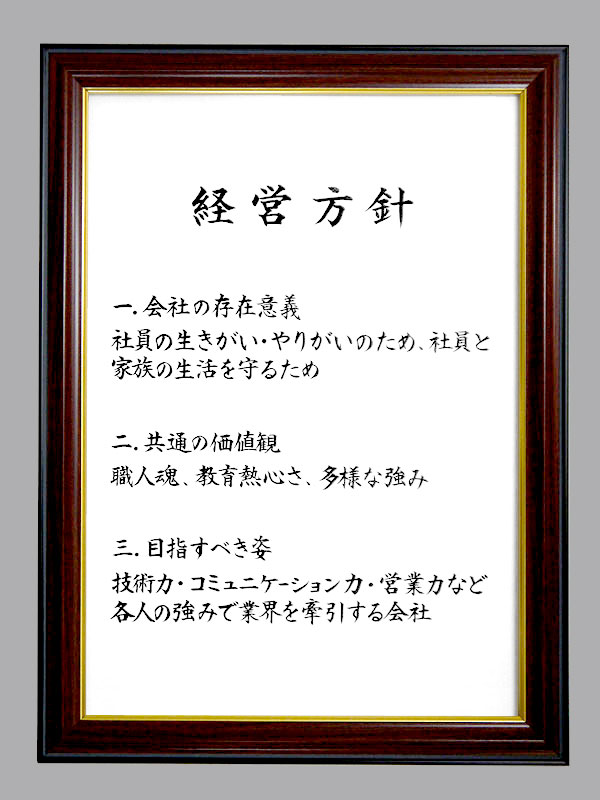 経営方針
一.会社の存在意義
社員の生きがい・やりがいのため、社員と
家族の生活を守るため
二.共通の価値観
職人魂、教育熱心さ、多様な強み
三.目指すべき姿
技術力・コミュニケーション力・営業力など
各人の強みで業界を牽引する会社